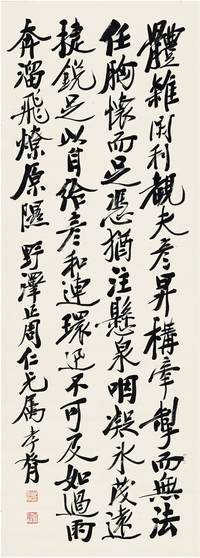 體雖閑利觀夫彥昇構牽掣而無法
任胸懷而足憑猶注懸泉咽凝冰茂遠
捷銳足以自給彥和連環迅不可及如過雨
奔溜飛燎原隰 野澤正周仁兄屬 孝胥